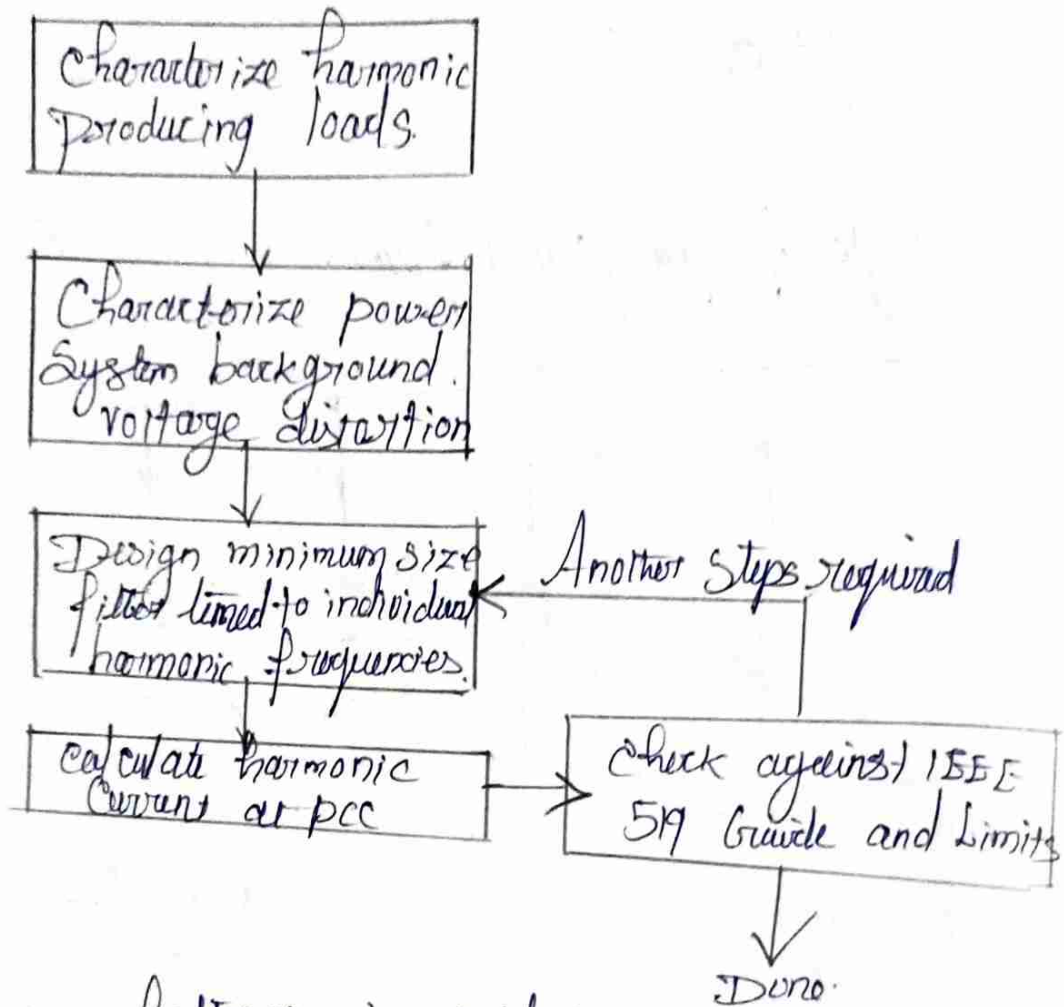 Characterize harmonic
producing loads.
Characterize power
System background.
voltage distortion
Design minimum size
filter tuned to individual
harmonic frequencies.
Another Steps required
calculate harmonic
Current at pcc
check against IEEE
519 Guide and Limits
Done.